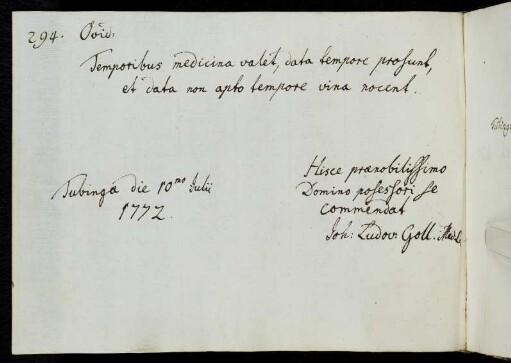 294. Ovid:
Temporibus medicina valet, data tempore prosunt,
et data non apto tempore vina nocent.
Tubingæ die 10mo Julii
1772.
Hisce prænobilissimo
Domino posessori se
commendat
Joh: Ludov: Goll.